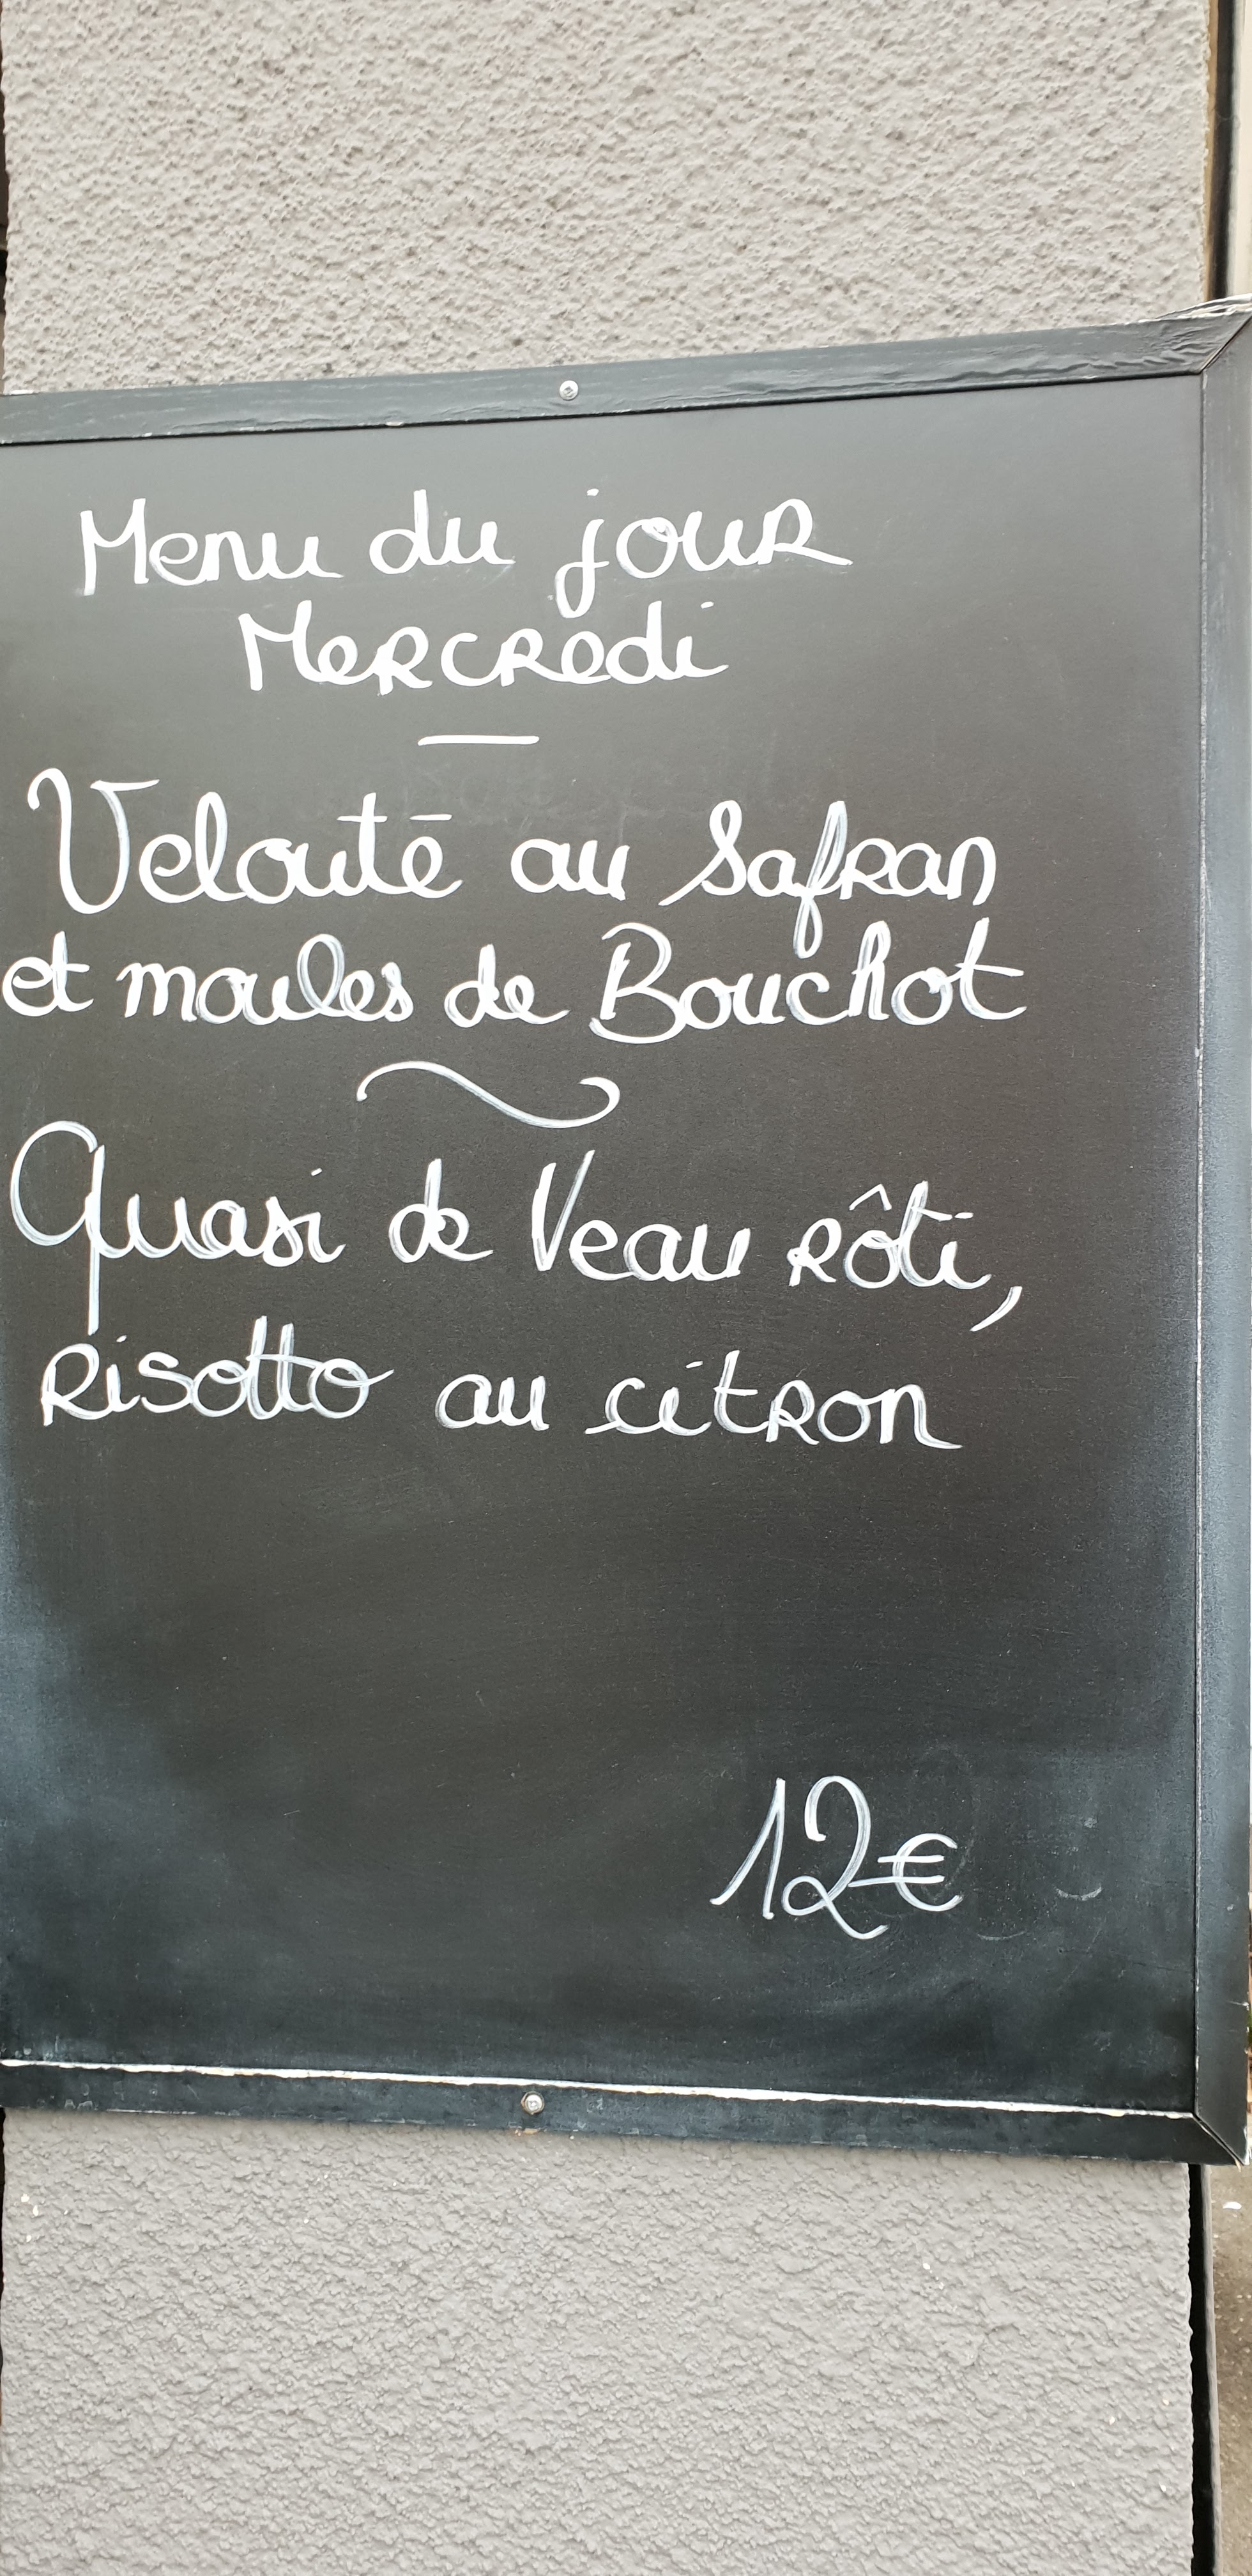 Menu du jour
Mercredi
Velouté au Safran
et moules de Bouchot
Quasi de Veau rôti,
risotto au citron
12€